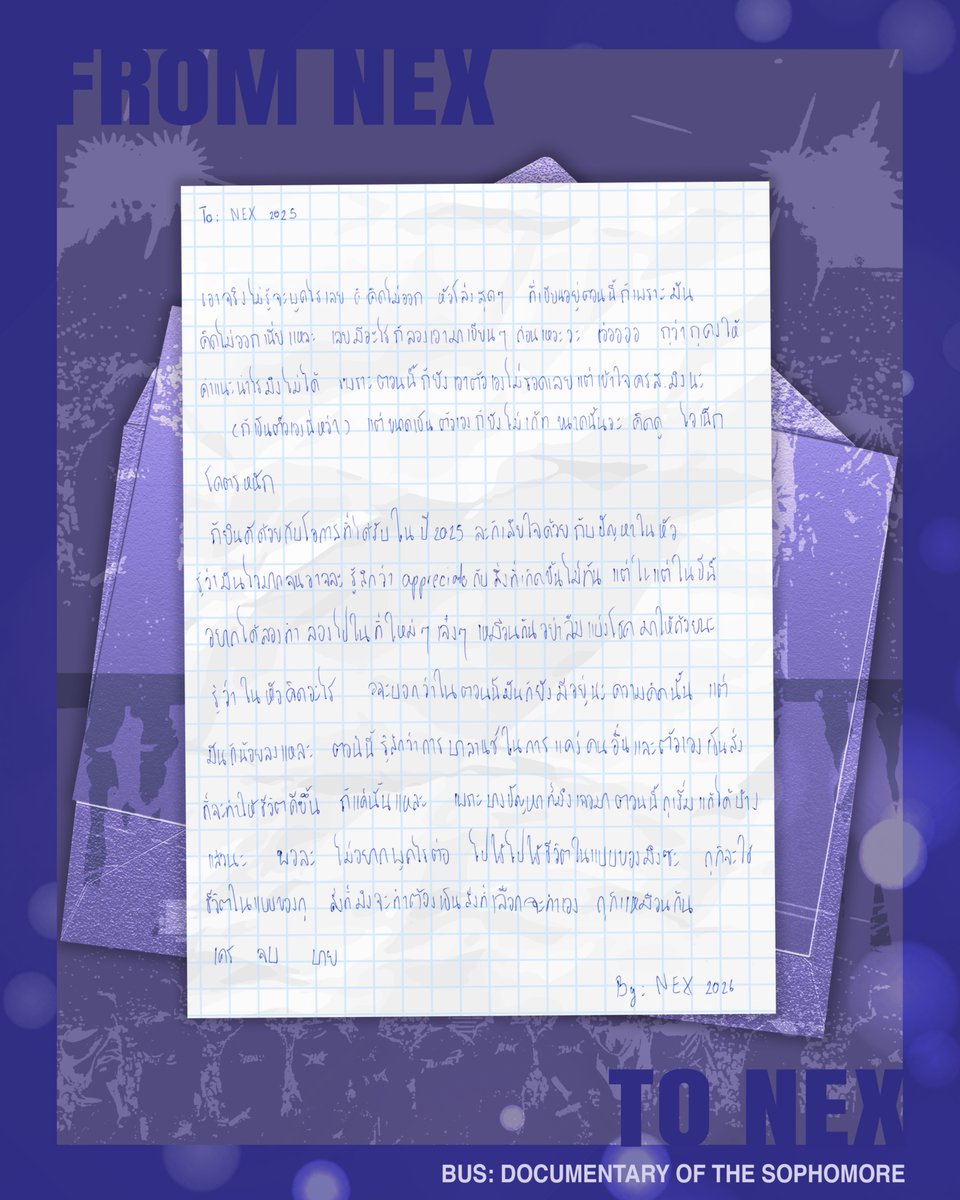 FROM NEX
To: NEX 2025
เอาจริงไม่รู้จะพูดไรเลย คิดไม่ออก หัวโล่งสุดๆ ที่เขียนอยู่ตอนนี้ก็เพราะมัน
คิดไม่ออกเนี่ยแหละ เลยมีอะไรก็ลองเอามาเขียนๆ ก่อนเหอะวะ เออออออ กูว่ากูคงให้
คำแนะนำไรมึงไม่ได้ เพราะตอนนี้ก็ยังเอาตัวเองไม่รอดเลยแต่เข้าใจครส.มึงนะ
(ก็เป็นตัวเองนี่หว่า) แต่ขนาดเป็นตัวเองก็ยังไม่เก็ท ขนาดนั้นอะ คิดดู ไอเน็ก
โคตรหนัก
ก็ยินดีด้วยกับโอกาสที่ได้รับในปี 2025 ละก็เสียใจด้วยกับปัญหาในหัว
รู้ว่ามันไวมากจนอาจจะ รู้สึกว่า appreciate กับสิ่งที่เกิดขึ้นไม่ทัน แต่ในแต่ในปีนี้
อยากได้ลองทำ ลองไปในที่ใหม่ๆ เจ๋งๆ เหมือนกันอย่าลืมแบ่งโชคมาให้ด้วยนะ
รู้ว่าในหัวคิดอะไร จะบอกว่าในตอนนี้มันก็ยังมีอยู่นะ ความคิดนั้น แต่
มันก็น้อยลงแหละ ตอนนี้รู้สึกว่าการบาลานซ์ในการแคร์คนอื่นและตัวเองเป็นสิ่ง
ที่จะทำให้ชีวิตดีขึ้น ก็แค่นั้นแหละ เพราะบางปัญหาที่มึงเจอมา ตอนนี้กูเริ่มแก้ได้บ้าง
แล้วนะ พอละ ไม่อยากพูดไรต่อ ไปใช้ไปใช้ชีวิตในแบบของมึงซะ กูก็จะใช้
ชีวิตในแบบของกู สิ่งที่มึงจะทำต้องเป็นสิ่งที่เลือกจะทำเอง กูก็เหมือนกัน
เคร จบ บาย
By: NEX 2026
TO NEX
BUS: DOCUMENTARY OF THE SOPHOMORE